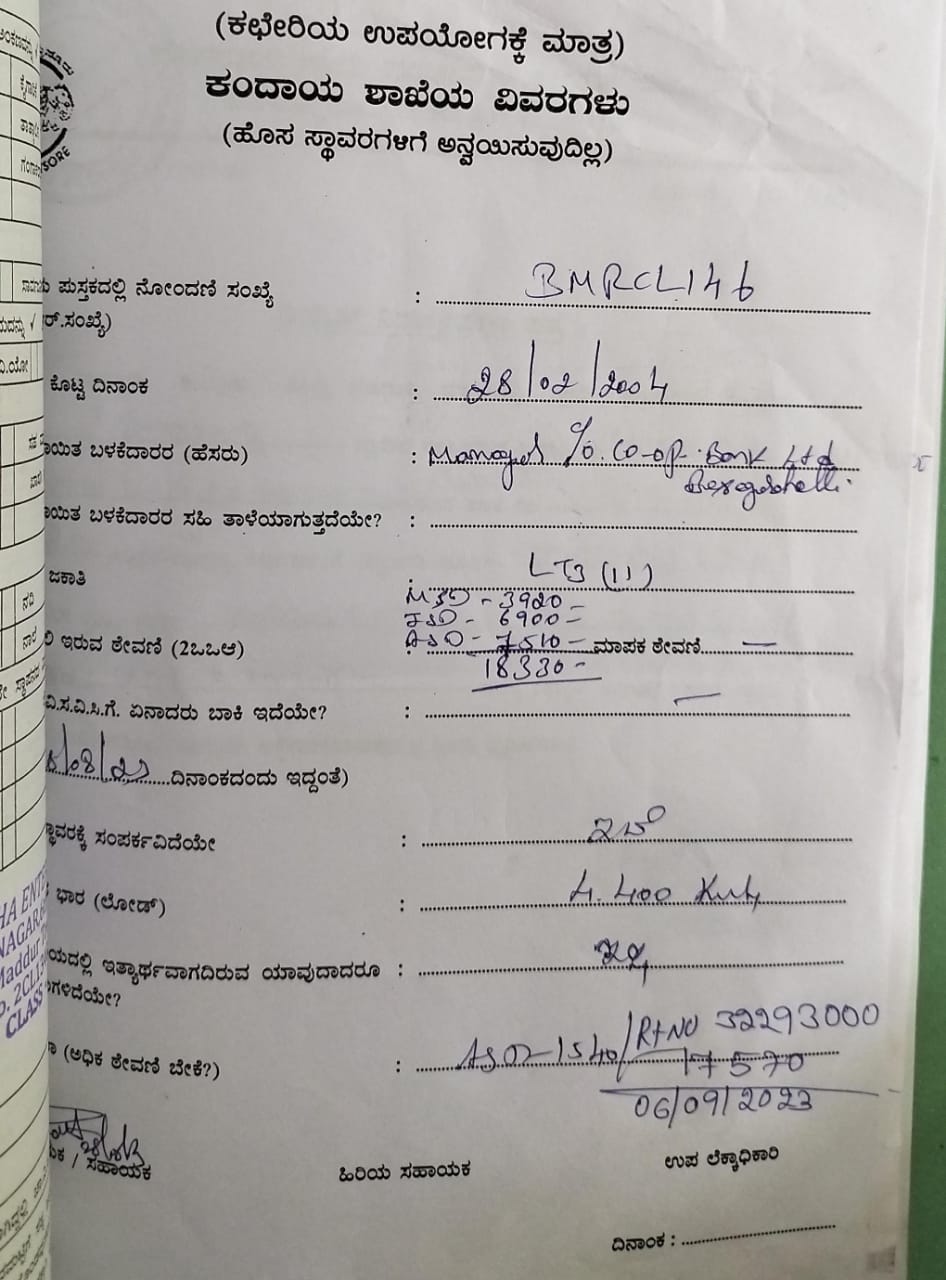 (ಕಛೇರಿಯ ಉಪಯೋಗಕ್ಕೆ ಮಾತ್ರ)
ಕಂದಾಯ ಶಾಖೆಯ ವಿವರಗಳು
(ಹೊಸ ಸ್ಥಾವರಗಳಿಗೆ ಅನ್ವಯಿಸುವುದಿಲ್ಲ)
ಪುಸ್ತಕದಲ್ಲಿ ನೋಂದಣಿ ಸಂಖ್ಯೆ : BMRCL146
ರ್.ಸಂಖ್ಯೆ)
ಕೊಟ್ಟ ದಿನಾಂಕ : 28/02/2004
ಾಯಿತ ಬಳಕೆದಾರರ (ಹೆಸರು) : Manager %. Co-op. Bank Ltd
ಾಯಿತ ಬಳಕೆದಾರರ ಸಹಿ ತಾಳೆಯಾಗುತ್ತದೆಯೇ? :
ಜಕಾತಿ : LT3 (11)
MSD - 3920 =
ISD - 6900 =
ಇರುವ ಠೇವಣಿ (2ಒಒಆ) : ASD - 7510 - ಮಾಪಕ ಠೇವಣಿ —
18330 -
ವಿ.ಸ.ವಿ.ಸಿ.ಗೆ. ಏನಾದರು ಬಾಕಿ ಇದೆಯೇ? : —
/08/23 ದಿನಾಂಕದಂದು ಇದ್ದಂತೆ)
ಸ್ಥಾವರಕ್ಕೆ ಸಂಪರ್ಕವಿದೆಯೇ : ಇದೆ
ಭಾರ (ಲೋಡ್) : 4.400 Kw
ಯದಲ್ಲಿ ಇತ್ಯಾರ್ಥವಾಗದಿರುವ ಯಾವುದಾದರೂ : ಇಲ್ಲ
ಗಳಿದೆಯೇ?
(ಅಧಿಕ ಠೇವಣಿ ಬೇಕೆ?) : ASD-1540/Rt NO 32293000
17570
06/09/2023
ಕ / ಸಹಾಯಕ ಹಿರಿಯ ಸಹಾಯಕ ಉಪ ಲೆಕ್ಕಾಧಿಕಾರಿ
ದಿನಾಂಕ :